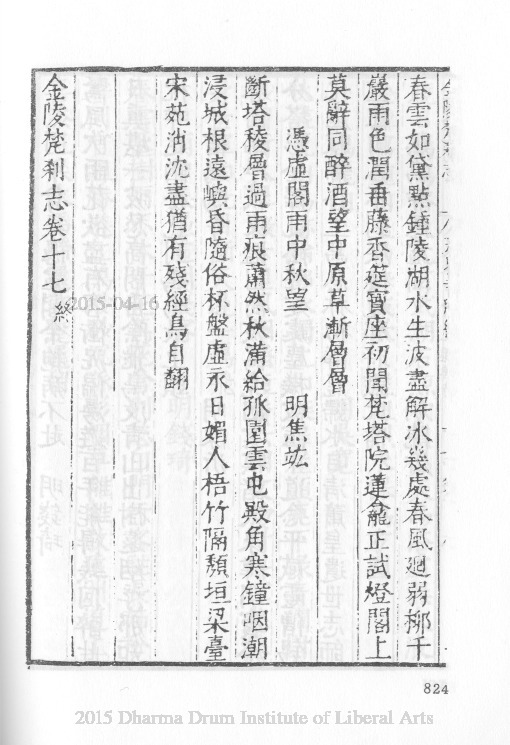 春雲如黛點鍾陵湖水生波盡解冰幾處春風廻弱柳千
巖雨色潤垂藤香莚寶座初聞梵塔院蓮龕正試燈閣上
莫辭同醉酒望中原草漸層層
憑虛閣雨中秋望　明焦竑
斷塔稜層過雨痕蕭然秋滿給孤園雲屯殿角寒鐘咽潮
浸城根遠嶼昏隨俗杯盤虛永日媚人梧竹隔頹垣梁臺
宋苑消沈盡猶有殘經鳥自翻
金陵梵刹志卷十七終
2015-04-16
824
2015 Dharma Drum Institute of Liberal Arts